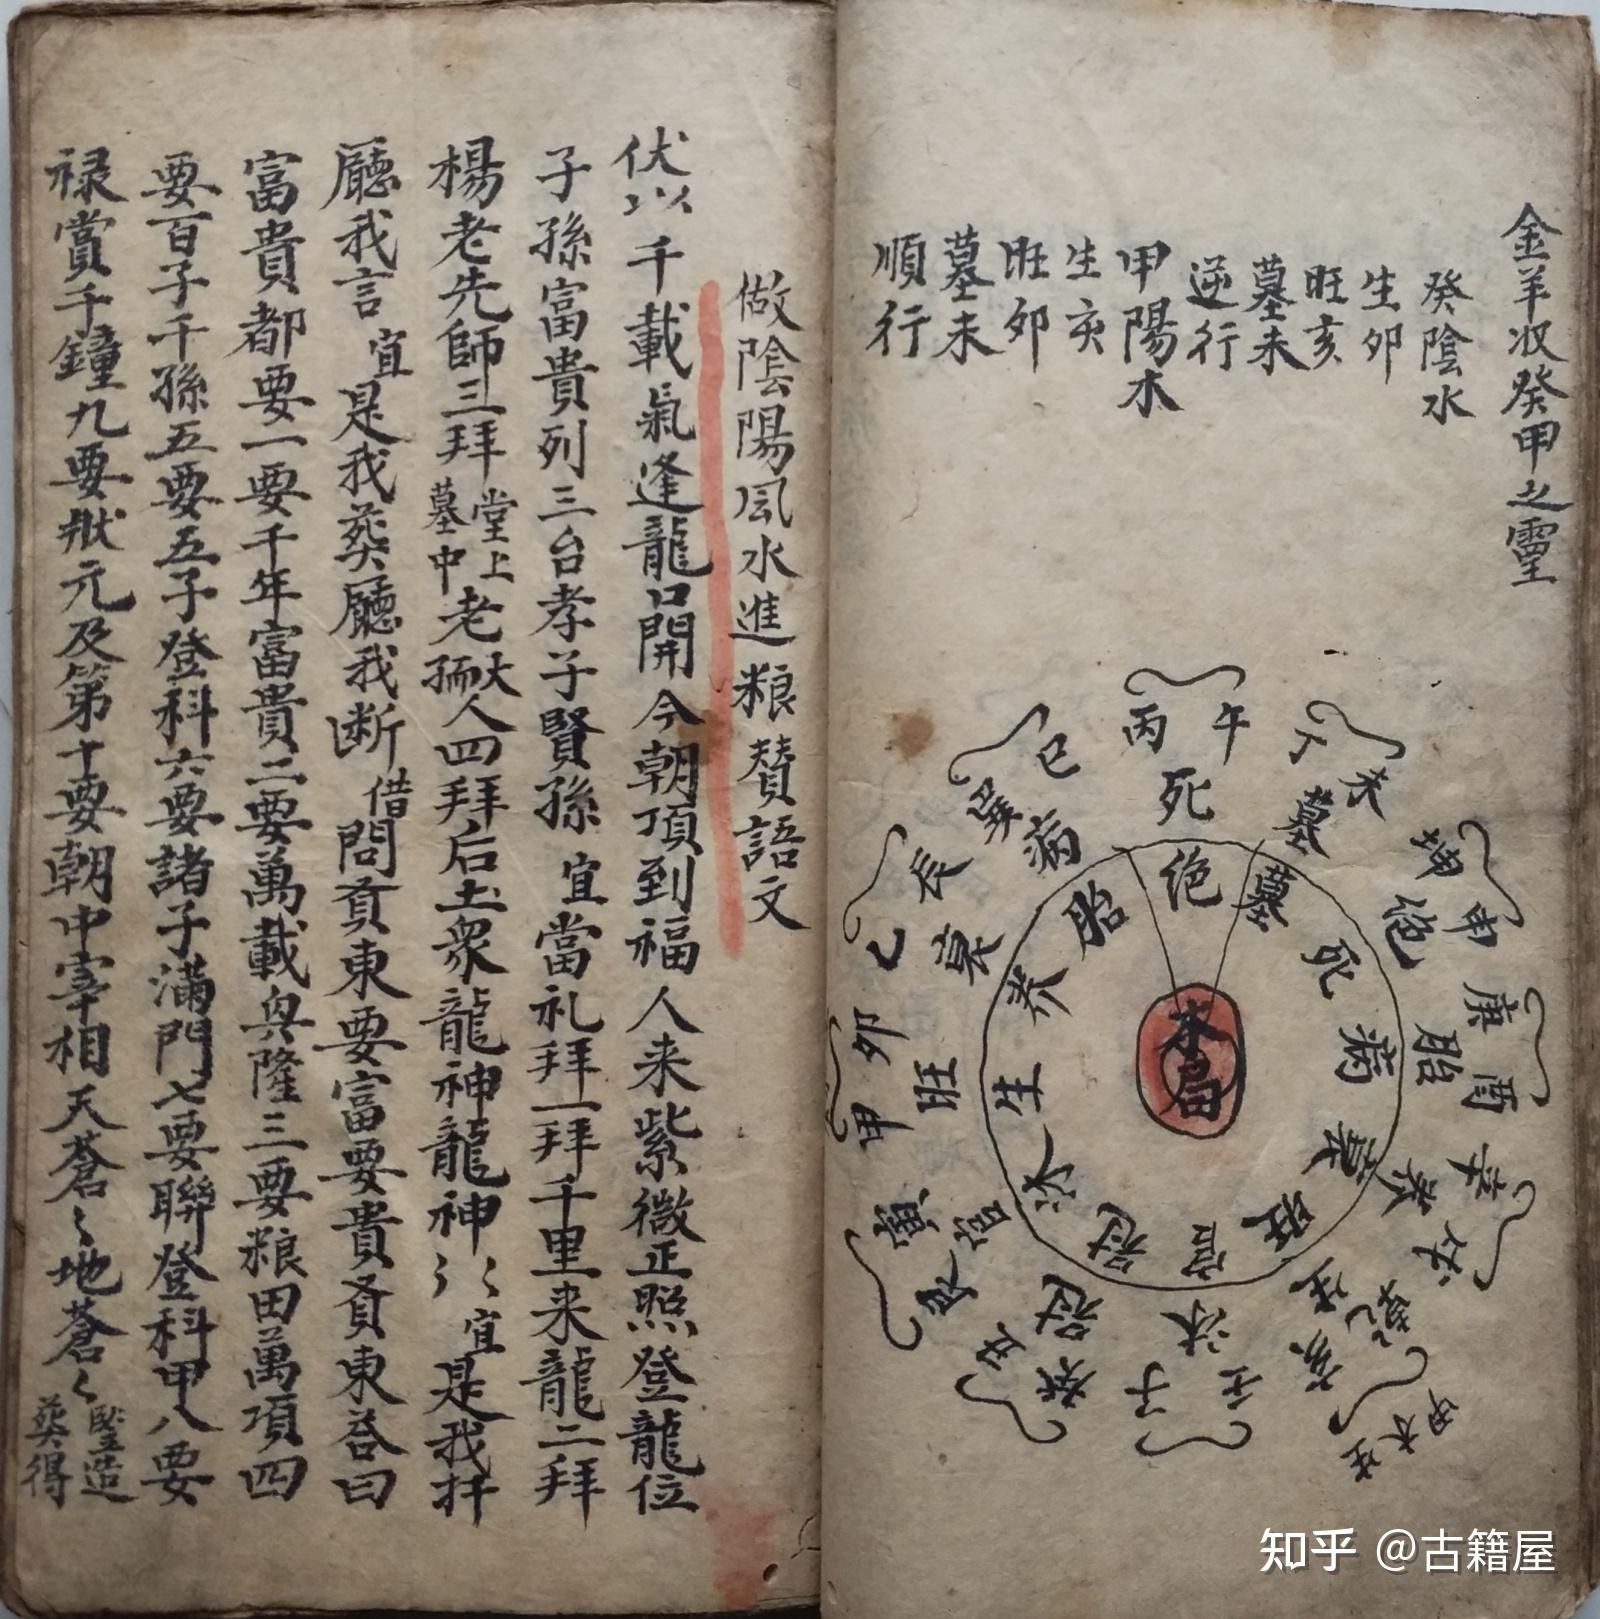 金羊収癸甲之靈
癸陰水
生卯
旺亥
墓未
逆行
甲陽木
生亥
旺卯
墓未
順行
丙午
丁未
坤申
庚酉
辛戌
乾亥
壬子
癸丑
艮寅
甲卯
乙辰
巽巳
死
墓
绝
胎
养
生
沐
冠
官
旺
衰
病
绝
墓
死
病
衰
旺
官
冠
沐
生
养
胎
本局
甲木生
做陰陽风水進粮賛語文
伏以千載氣逢龍口開今朝頂到福人来紫微正照登龍位
子孫富貴列三台孝子賢孫宜當礼拜一拜千里来龍二拜
楊老先師三拜堂上墓中老大孺人四拜后土衆龍神龍神〻〻宜是我扞
廳我言宜是我葬廳我断借問賁東要富要貴賁東荅曰
富貴都要一要千年富貴二要萬載與隆三要粮田萬項四
要百子千孫五要五子登科六要諸子滿門七要聯登科甲八要
禄賞千鐘九要狀元及第十要朝中宰相天蒼〻地蒼〻竪造葬得
知乎 @古籍屋